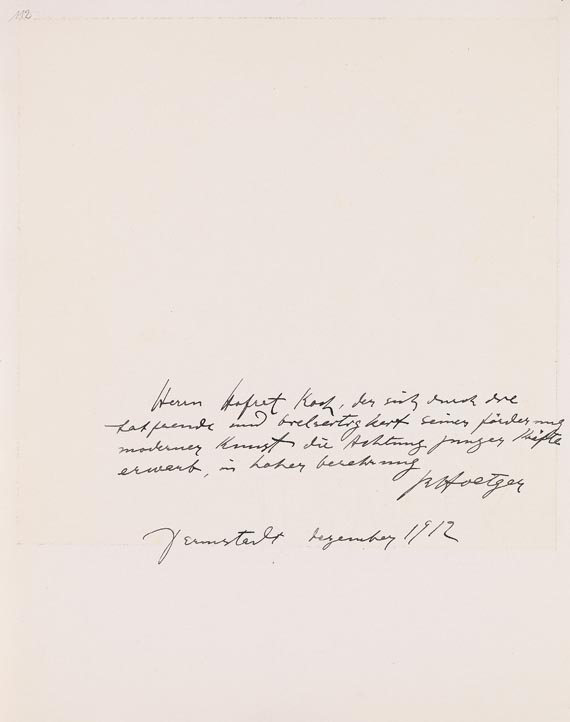 112
Herrn Hofrat Koch, der sich durch die
tatfreude und vielseitigkeit seiner förderung
moderner Kunst die Achtung junger Kräfte
erwarb, in hoher verehrung
B Hoetger
Darmstadt dezember 1912